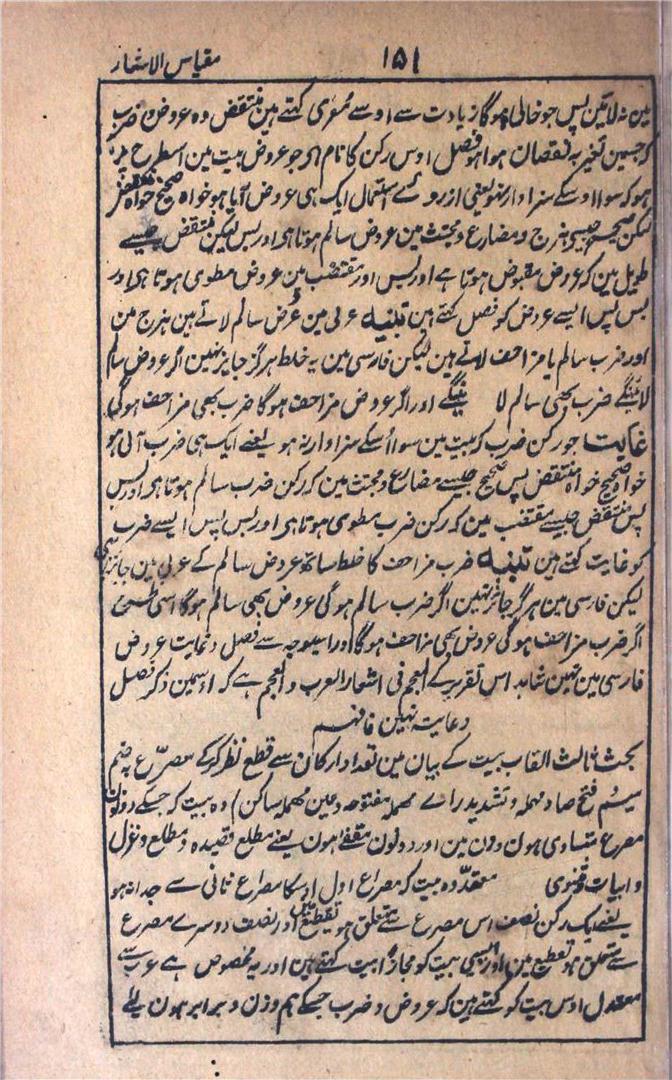 ۱۵۱ مقیاس الاشعار
مین نہ لائین پس جو خالی ہوگا زیادت سے اوسے معریٰ کہتے ہین منتقض وہ عروض و ضرب
کہ جسین تغیر بہ نقصان ہوا ہو فصل اوس رکن کا نام ہی جو عروض بیت مین اسطرح پر
ہو کہ سوا اوسکے سزاوار نہو یعنی ازروے استعمال ایک ہی عروض آیا ہو خواہ صحیح خواہ منتقض
لیکن صحیح جیسے ہزج و مضارع و مجتث مین عروض سالم ہوتا ہی اور بس لیکن منتقض جیسے
طویل مین کہ عروض مقبوض ہوتا ہے اور بس اور مقتضب مین عروض مطوی ہوتا ہی اور
بس پس ایسے عروض کو فصل کہتے ہین تنبیہ عربی مین عروض سالم لاتے ہین ہزج مین
اور ضرب سالم یا مزاحف لاتے ہین لیکن فارسی مین یہ خلط ہرگز جایز نہین اگر عروض سالم
لائینگے ضرب بھی سالم لا ئینگے اور اگر عروض مزاحف ہوگا ضرب بھی مزاحف ہوگی
غایت جو رکن ضرب کہ بیت مین سوا اُسکے سزاوار نہ ہو یعنے ایک ہی ضرب آئی ہو
خواہ صحیح خواہ منتقض پس صحیح جیسے مضارع و مجتث مین کہ رکن ضرب سالم ہوتا ہی اور بس
پس منتقض جیسے مقتضب مین کہ رکن ضرب مطوی ہوتا ہی اور بس پس ایسے ضرب
کو غایت کہتے ہین تنبیہ ضرب مزاحف کا خلط ساتھ عروض سالم کے عربی مین جائز ہی
لیکن فارسی مین ہرگز جائز نہین اگر ضرب سالم ہوگی عروض بھی سالم ہوگا اسی طرح
اگر ضرب مزاحف ہوگی عروض بھی مزاحف ہوگا اور اسیوجہ سے فصل و غایت عروض
فارسی مین نہین شاہد اس تقریر کے المعجم فی اشعار العرب و العجم ہے کہ اوسمین ذکر فصل
و غایت نہین فافہم
بحث ثالث القاب بیت کے بیان مین تعداد ارکان سے قطع نظر کرکے مصرّع بہ ضم
میم و فتح صاد مہملہ و تشدید راے مہملہ مفتوحہ و عین مہملہ ساکن) وہ بیت کہ جسکے دونون
مصرع متساوی ہون وزن مین اور دونون مقفےٰ ہون یعنے مطلع قصیدہ و مطلع و غزل
و ابیات مثنوی معقّد وہ بیت کہ مصراع اول اوسکا مصراع ثانی سے جدا نہو
یعنے ایک رکن نصف اس مصرع سے متعلق ہو تقطیع مین اور نصف دوسرے مصرع
سے متعلق ہو تقطیع مین اور ایسی بیت کو مجازاً بیت کہتے ہین اور یہ مخصوص ہے عرب سے
معتدل اوس بیت کو کہتے ہین کہ عروض و ضرب جسکے ہم وزن و برابر ہون یعنے